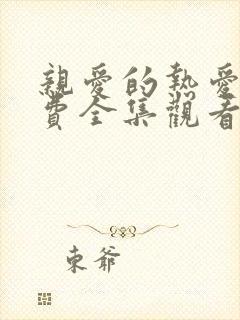 親愛的熱愛
費全集觀看
東爺